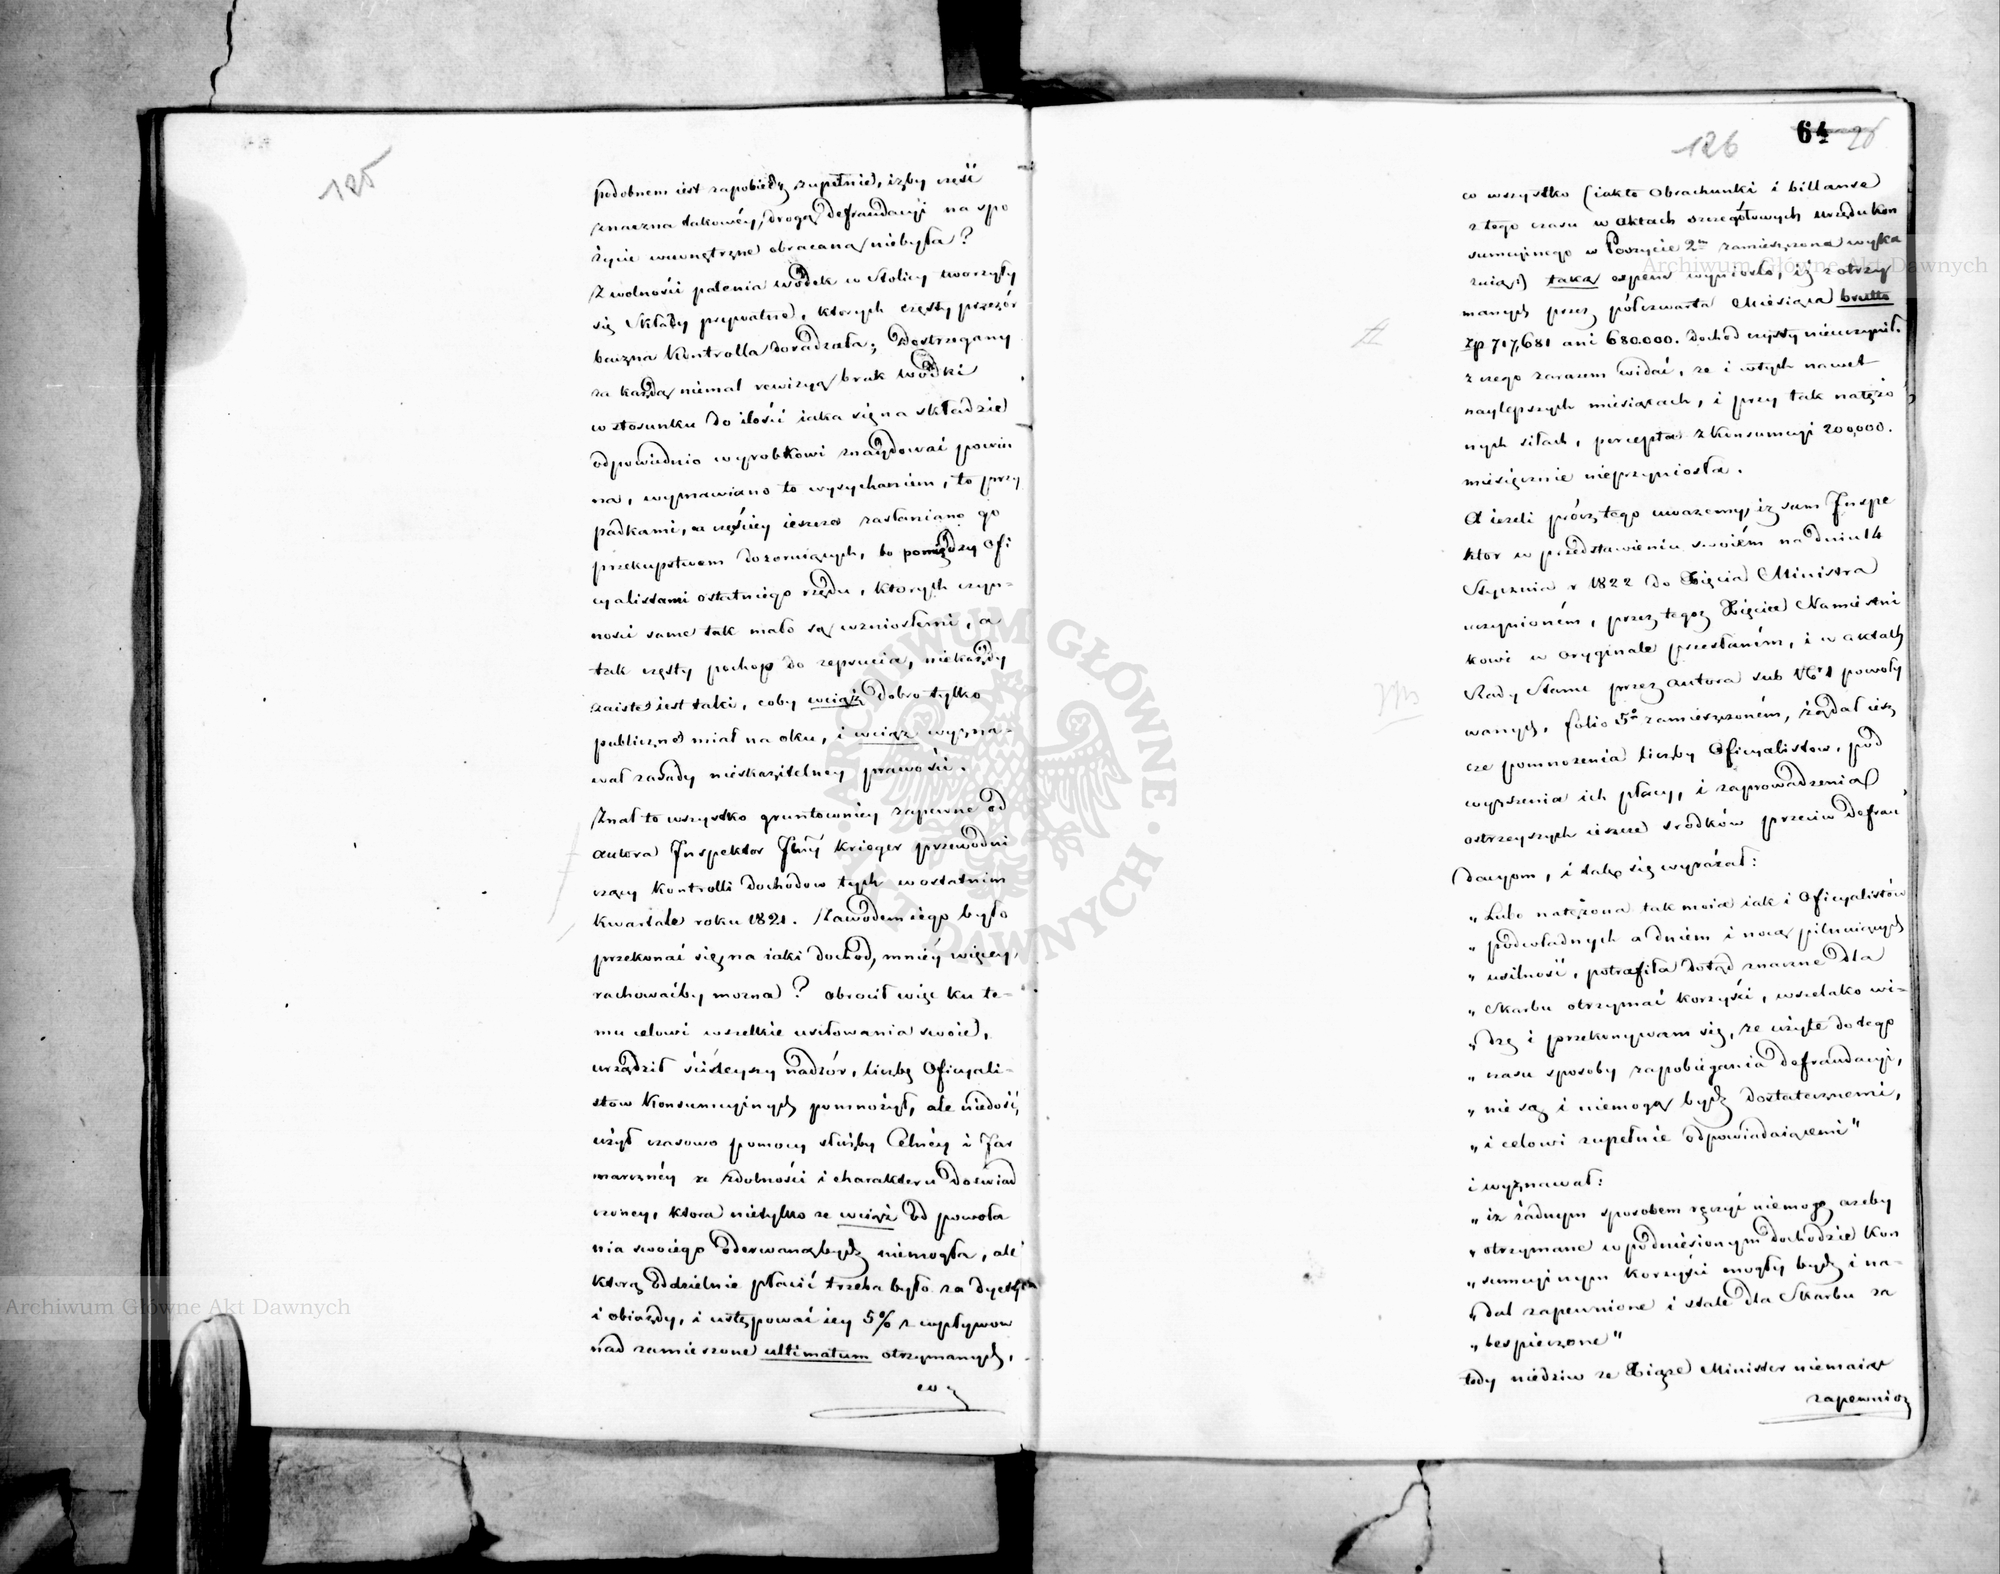 125
podobnem iest zapobiedz zupełnie, iżby część
znaczna takowéy, drogą defraudacyi na spo
życie wewnętrzne obracaną niebyła?
Z wolności palenia wódek w Stolicy tworzyły
się Składy prywatne, których częsty przezór
baczna Kontrolla doradzała; Dostrzegany
za każdą niemal rewizyą brak wódki
w stosunku do ilości iaka się na składzie
odpowiednio wyrobkowi znaydować powin
na, wymawiano to wysychaniem, to przy
padkami, a częściey ieszcze zasłaniano go
przekupstwem dozoruiących, bo pomiędzy Ofi
cyalistami ostatniego rzędu, których czyn-
ności same tak mało są wzniosłemi, a
tak częsty pochop do zepsucia, niekażdy
zaiste iest taki, coby wciąż dobro tylko
publiczne miał na oku, i wciąż wyzna-
wał zasady nieskazitelney prawości.
Znał to wszystko gruntowniey zapewne od
autora Inspektor Jlny Krieger przewodni
czący Kontrolli dochodow tych w ostatnim
kwartale roku 1821. Zawodem iego było
przekonać się, na iaki dochód, mniéy więcey,
rachowaćby można? obrocił więc ku te-
mu celowi wszelkie usiłowania swoie,
urządził ściśleyszy nadzór, liczbę Oficyali-
stow Konsumcyinych pomnożył, ale niedość,
użył czasowo pomocy służby Celnéy i Jar
marcznéy ze zdolności i charakteru doświad
czoney, ktora nietylko ze wciąż od powoła
nia swoiego oderwaną bydź niemogła, ale
ktorą oddzielnie płacić trzeba było za dyety
i obiazdy, i ustępować iey 5% z wpływow
nad zamieszone ultimatum otrzymanych,
co
126
64 26
co wszystko (iakto Obrachunki i billanse
z tego czasu w Aktach szczegółowych Urzędu Kon
sumcyinego w Poszycie 2m zamieszczone wyka
zuią) taką expens wyniosło, iż z otrzy
manych przez półczwarta Miesiąca brutto
zp 717,681 ani 680.000. dochod czysty nieuczynił.
z czego zarazem widać, ze i w tych nawet
naylepszych miesiącach, i przy tak natężo
nych siłach, percepta z Konsumcyi 200,000.
miesięcznie nieprzyniosła.
A ieżeli prócz tego uważemy, iż sam Inspe
ktor w przedstawieniu swoiém na dniu 14
Stycznia r 1822 do Xięcia Ministra
uczynioném, przez tegoż Xięcia Namiestni
kowi w oryginale przesłaném, i w aktach
Rady Stanu przez autora sub No 1 powoły
wanych, folio 5o zamieszczoném, żądał iesz
cze pomnożenia liczby Oficyalistow, pod
wyższenia ich płacy, i zaprowadzenia
ostrzeyszych ieszcze srodków przeciw defrau
dacyom, i tak się wyrażał:
„Lubo natężona tak moia iak i Oficyalistów
„podwładnych a dniem i nocą pilnuiących
„usilność, potrafiła dotąd znaczne dla
„Skarbu otrzymać korzyści, wszelako wi-
„dzę i przekonywam się, że użyte do tego
„czasu sposoby zapobiegania defraudacyi,
„nie są i niemogą bydź dostatecznemi,
„i celowi zupełnie odpowiadaiącemi"
i wyznawał:
„iż żadnym sposobem ręczyć niemogę azeby
„otrzymane w podniesionym dochodzie Kon
„sumcyinym korzyści mogły bydź i na-
„dal zapewnione i stale dla Skarbu za
„bespieczone"
tedy niedziw ze Xiąże Minister niemaiąc
zapewnioz
Archiwum Główne Akt Dawnych
Archiwum Główne Akt Dawnych
ARCHIWUM GŁÓWNE AKT DAWNYCH